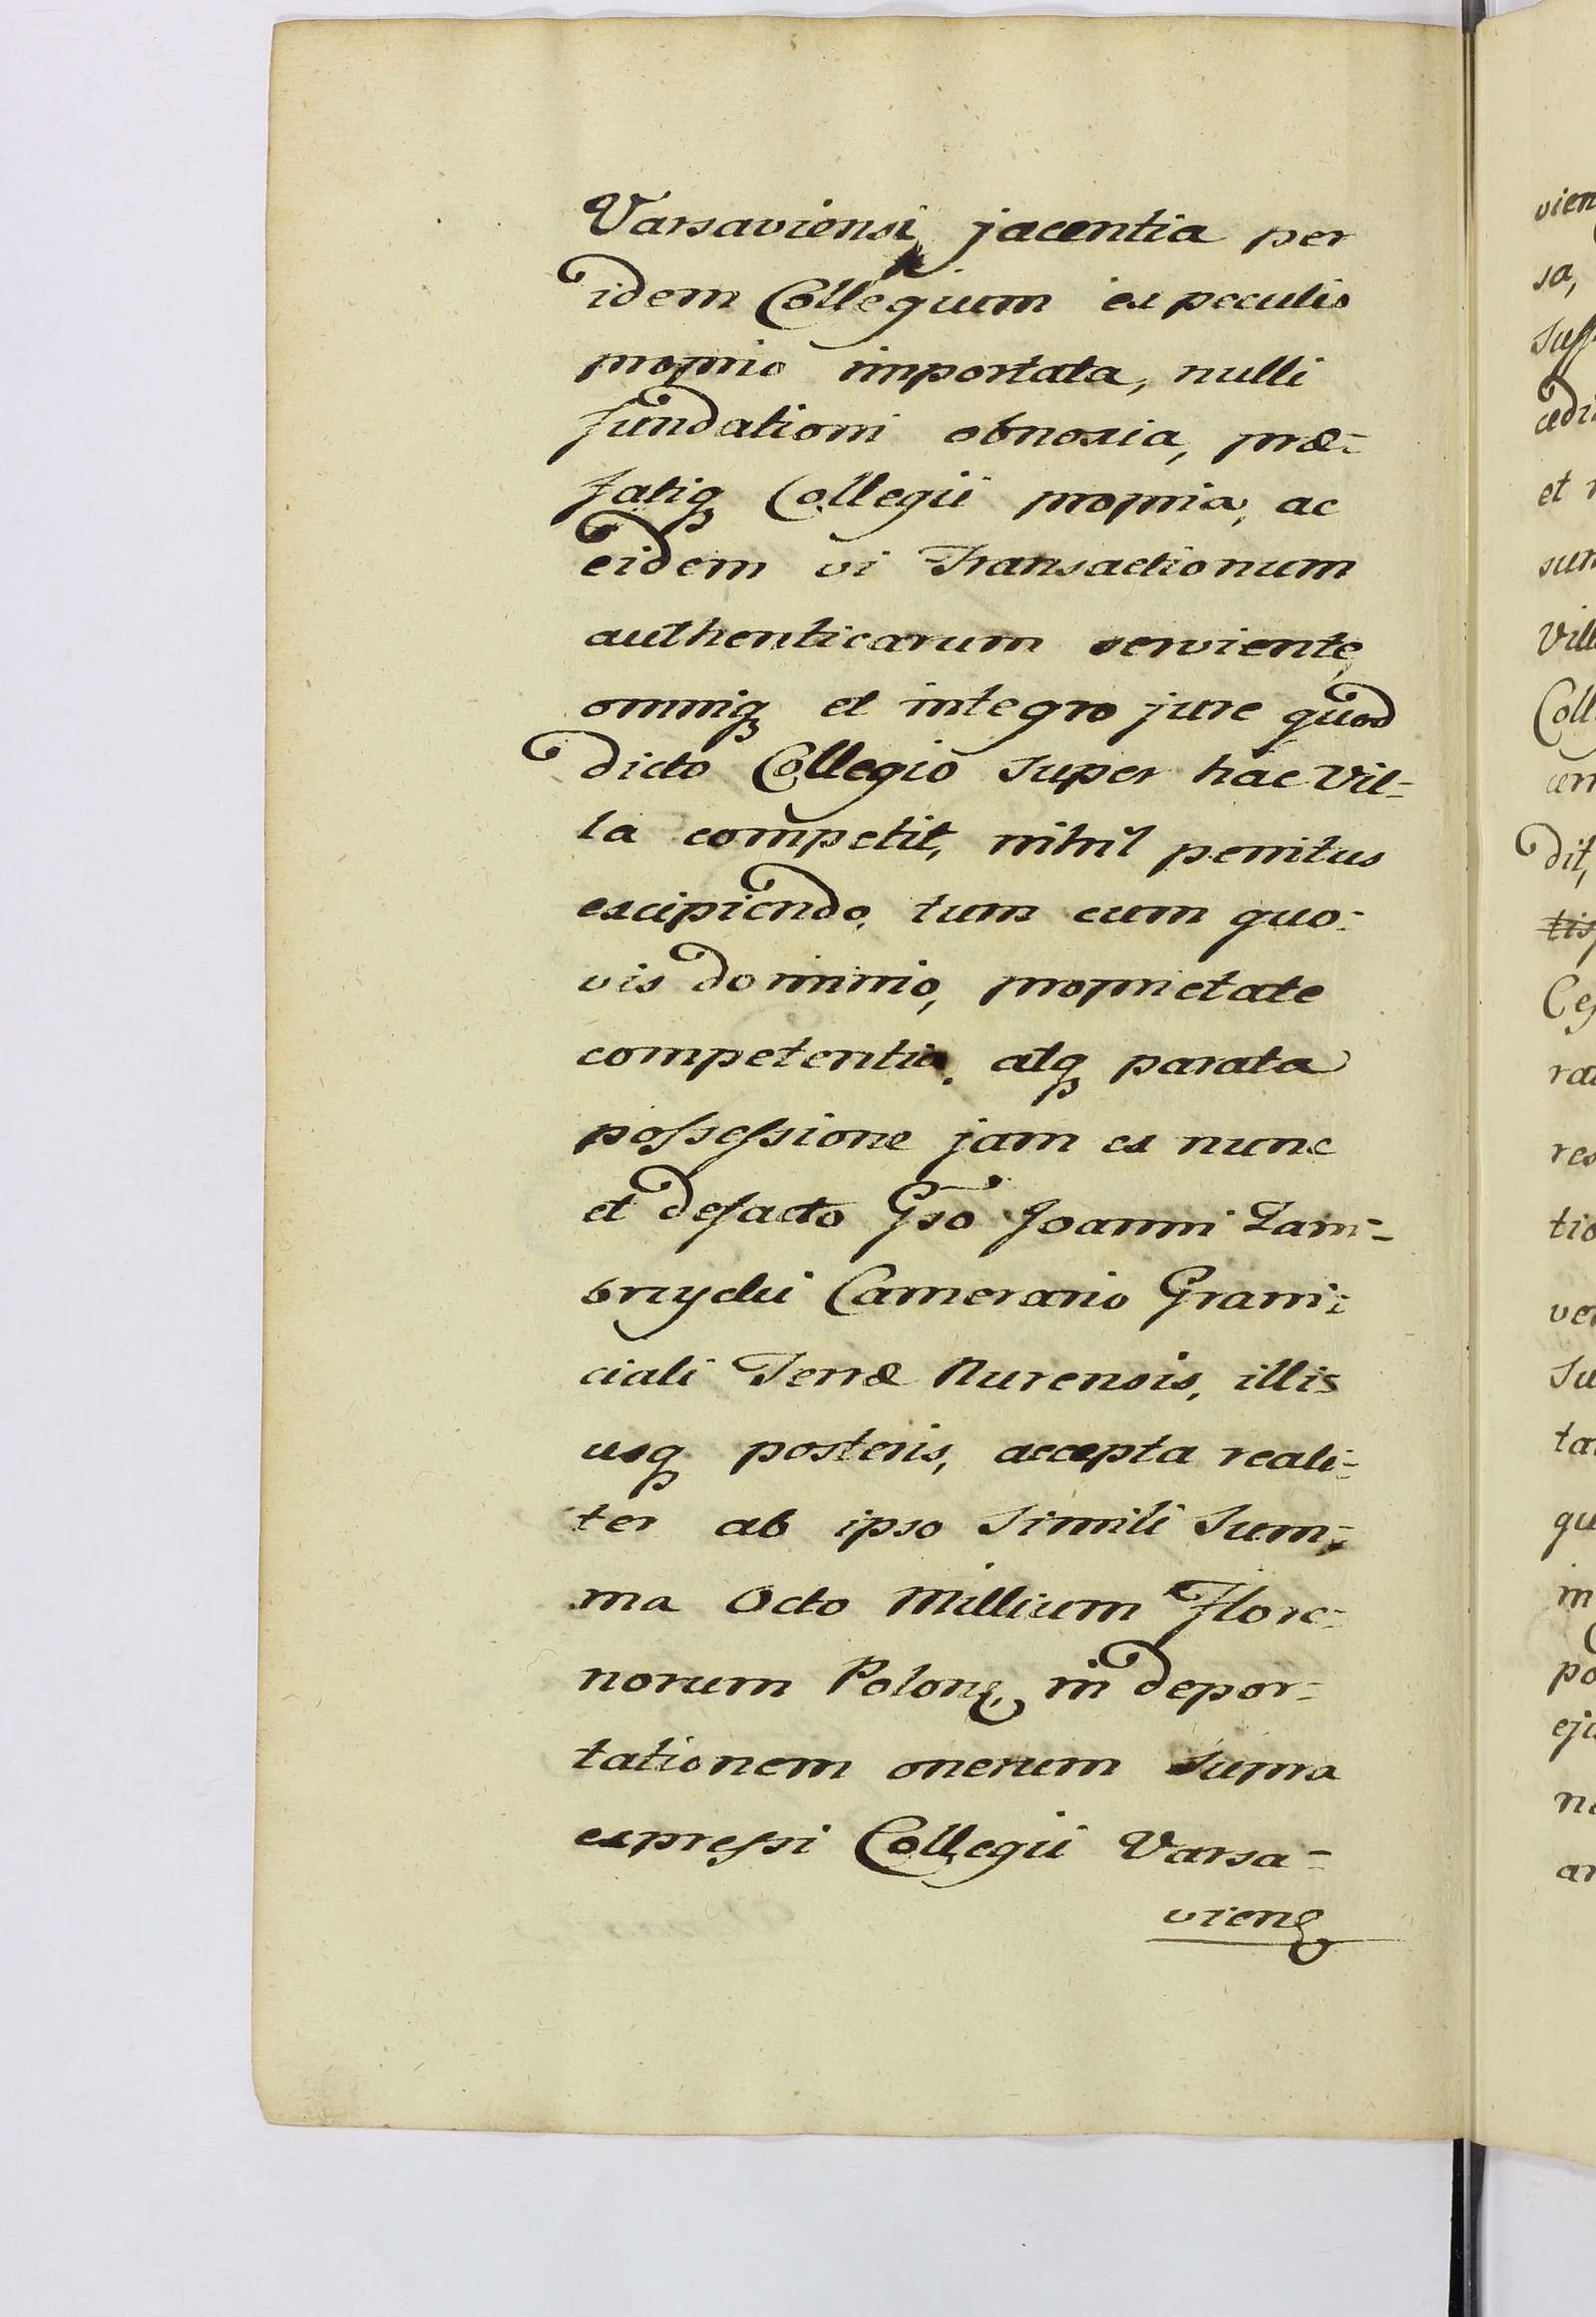 Varsaviensi jacentia per
idem Collegium ex peculio
proprio importata, nulli
fundationi obnoxia, præ=
fatiq Collegii propria, ac
eidem vi Transactionum
authenticarum serviente,
omniq et integro jure quod
dicto Collegio super hac Vil=
la competit, nihil penitus
excipiendo, tum cum quo=
vis dominio, proprietate
competentia, atq parata
possessione jam ex nunc
et defacto Gso Joanni Zam=
brzycki Camerario Grani=
ciali Terræ Nurensis, illis
usq posteris, accepta reali=
ter ab ipso simili Sum=
ma Octo Millium Flore=
norum Polon, in depor=
tationem onerum supra
expressi Collegii Varsa=
viens
vien
sa,
suff
ædi
et
sum
Vill
Coll
dit,
tis
res
tio
ver
Su
ta
qu
in
po
eju